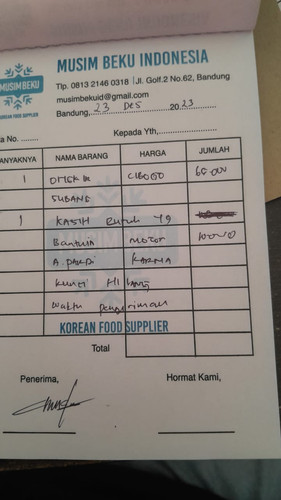 MUSIM BEKU INDONESIA
MUSIM BEKU
KOREAN FOOD SUPPLIER
Tlp. 0813 2146 0318 Jl. Golf.2 No.62, Bandung
musimbekuid@gmail.com
Bandung, 23 Des 2023
a No. ........
Kepada Yth,
ANYAKNYA NAMA BARANG HARGA JUMLAH
1 CIBOGO
SUBANG
1 KASIH untuk yg
Bantuin motor
KARNA
kunci HILANG
waktu pengiriman
MUSIM BEKU
KOREAN FOOD SUPPLIER
Total
Penerima, Hormat Kami,